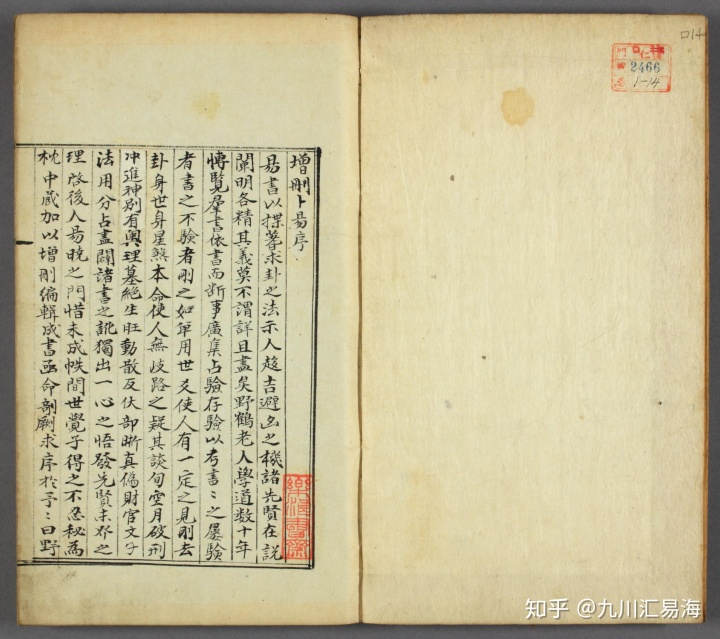 增刪卜易序
易書以揲蓍求卦之法示人趨吉避凶之機諸先賢在說
闡明各精其義莫不謂詳且盡矣野鶴老人學道数十年
博覽羣書依書而断事廣集占驗存驗以考書〻之屡驗
者書之不驗者刪之如单用世爻使人有一定之見刪去
卦身世身星煞本命使人無歧路之疑其談旬空月破刑
冲進神别有輿理墓絶生旺動散反伏部晰真偏財官文子
法用分占盡闢諸書之訛獨出一心之悟發先賢未發之
理啓後人易曉之門惜未成帙間世覺子得之不忍秘為
枕中蔵加以增刪編輯成書亟命剞劂求序於予〻曰野
2466
1-14
知乎 @九川汇易海